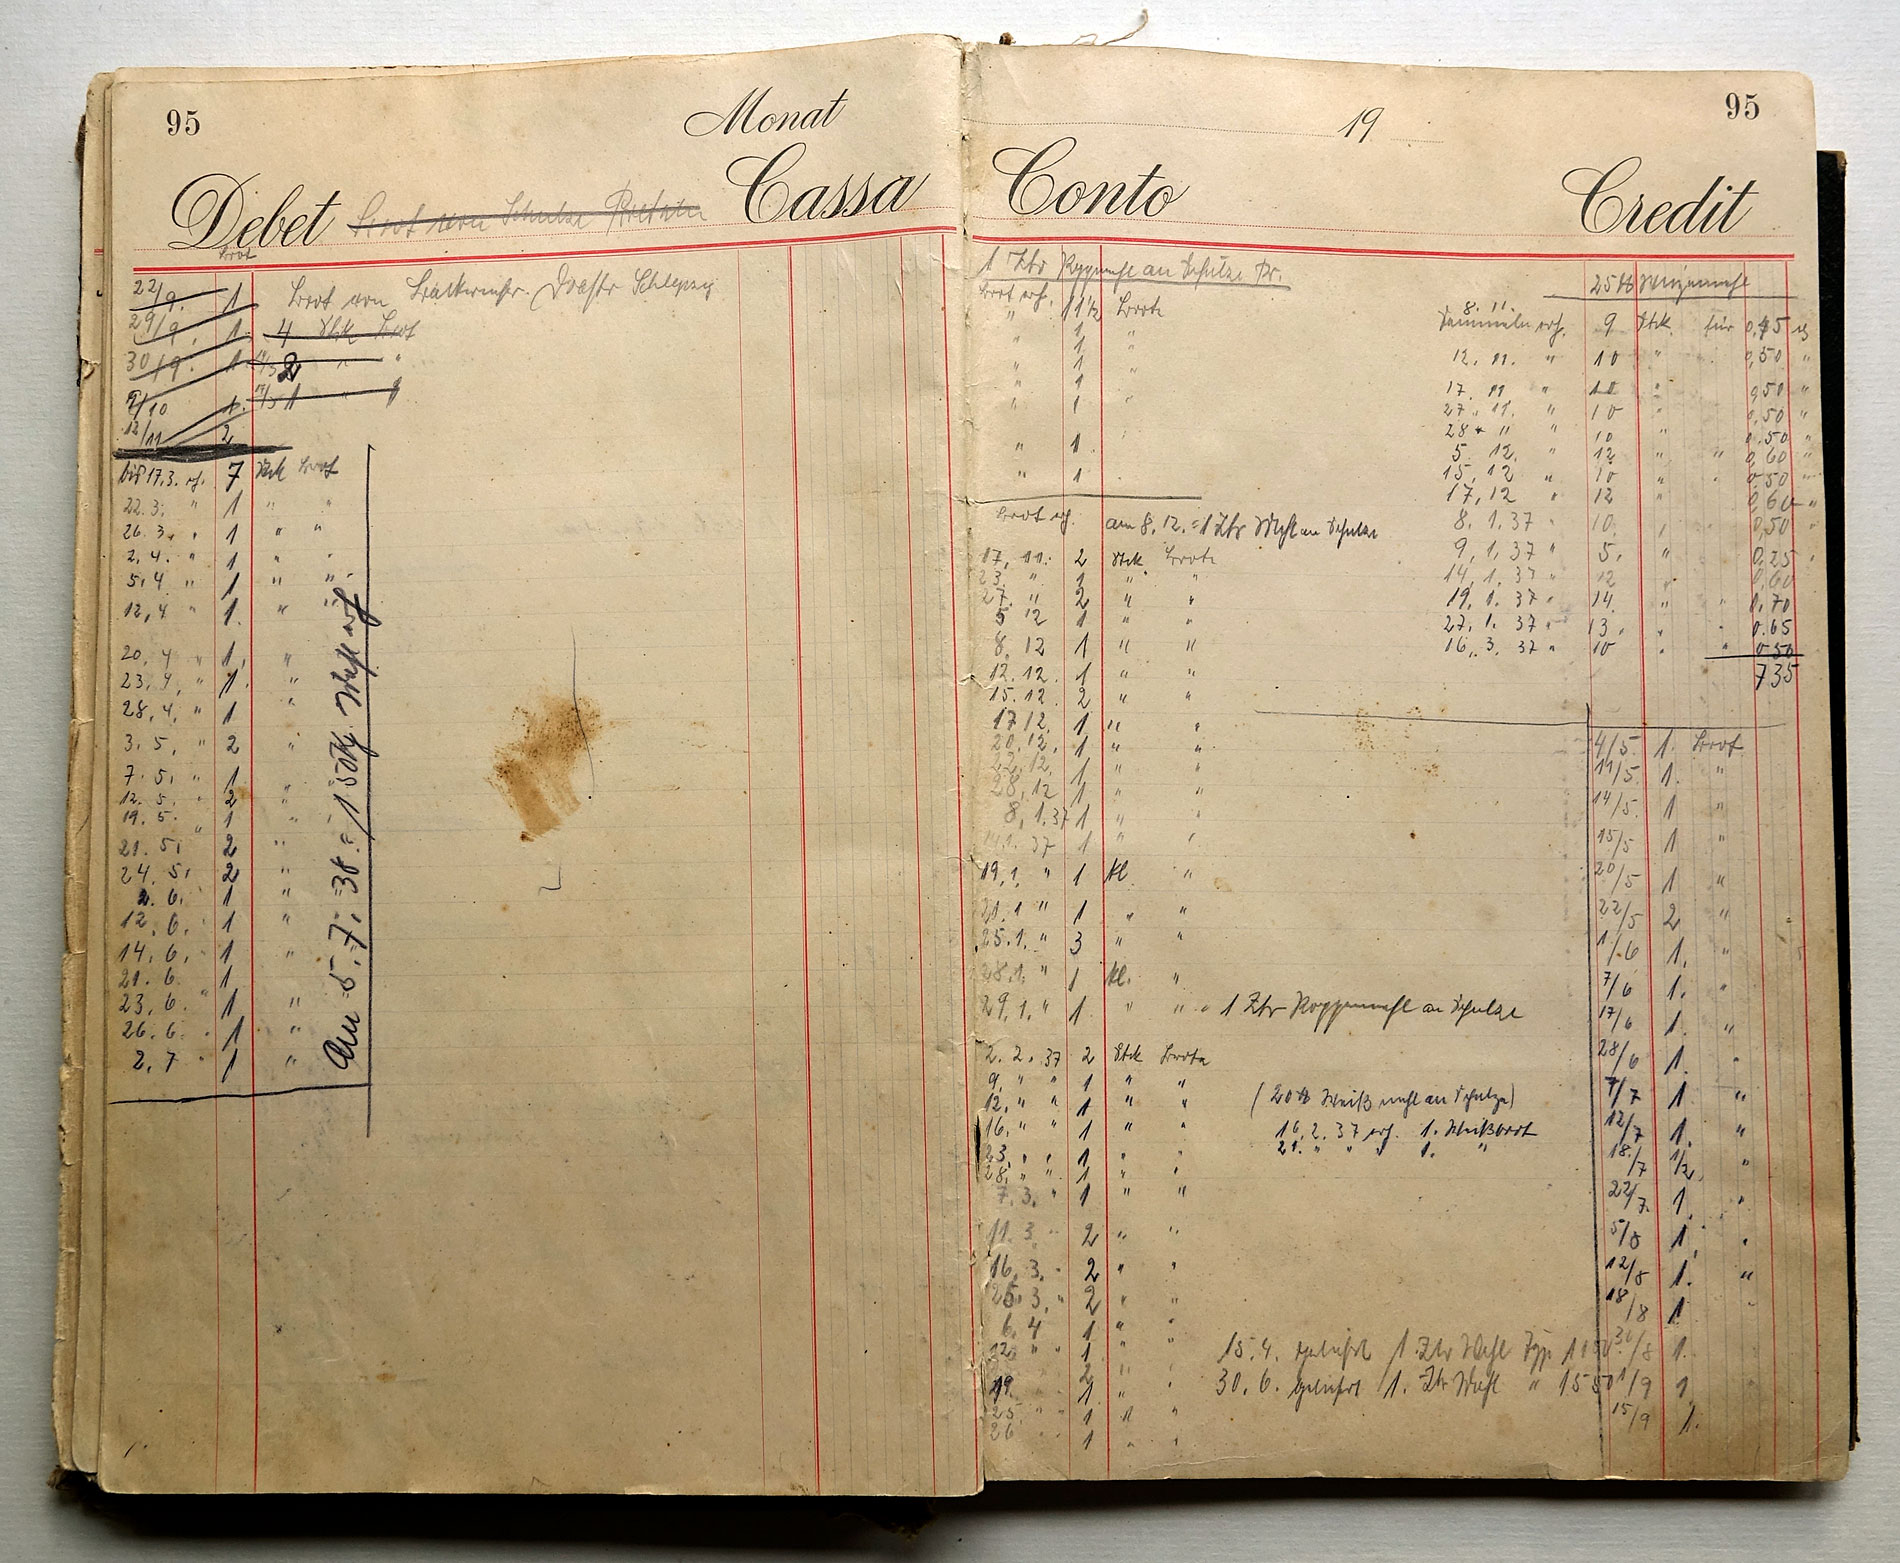 95
Monat
Debet Brot von Schulze Cassa
Brot
22/9. 1 Brot von Bäckermstr.
29/9. 1. 4 Stk Brot
30/9. 1 2 "
9/10 1. 1 " "
12/11 2
bis 17.3. erh. 7 Stck Brot
22.3. " 1 " "
26.3. " 1 " "
2.4. " 1 " "
5.4 " 1 " "
12.4 " 1. " "
20.4 " 1. "
23.4. " 1. "
28.4. " 1 "
3.5. " 2 "
7.5. " 1 "
12.5. " 2 "
19.5. " 1 "
21.5. 2 "
24.5. 2 "
2.6. 1 "
12.6. 1 "
14.6. 1 "
21.6. 1
23.6. " 1 "
26.6. " 1 "
2.7 " 1 "
Am 5.7.38 = 150 Kg Mehl
95
19
Conto Credit
1 Ztr Roggenmehl an Schulze Pr.
Brot erh. 1 1½ Brote
" 1 "
" 1 "
" 1 "
" 1 "
" 1
" 1
Brot erh. am 8.12. = 1 Ztr Mehl an Schulze
17.11. 2 Stck Brote
23. " 1 " "
27. " 2 " "
5 12 1 " "
8.12 1 " "
12.12. 1 " "
15.12. 2 " "
17.12. 1 " "
20.12. 1 " "
22.12. 1 " "
28.12 1 " "
8.1.37 1 " "
14.1.37 1 " "
19.1. " 1 kl. "
21.1 " 1 " "
25.1. " 3 " "
28.1. " 1 kl. "
29.1. " 1 " " = 1 Ztr Roggenmehl an Schulze
2.2.37 2 Stck Brote
9. " " 1 " "
12. " " 1 " " (20 ℔ Weißmehl an Schulze)
16. " " 1 " " 16.2.37 erh. 1. Weißbrot
21. " " " 1. "
23. " " 1 " "
28. " " 1 " "
7.3. " 1 " "
11.3. " 2 " "
16.3. " 2 " "
25.3. " 2 " "
6.4 1 " "
12 " " 1 " " 15.4. geliefert 1 Ztr Mehl Typ
2 " "
19. 1 " " 30.6. geliefert 1. Ztr Mehl " 1550
25. " " 1 " "
26 1 " "
25 ℔ Weizenmehl
8.11.
Semmeln erh. 9 Stck. für 0,45
12.11. " 10 " 0,50 "
17.11 " 10 " 0,50 "
27.11. " 10 " 0,50 "
28 " 11 " 10 " 0.50 "
5.12. " 12 " " 0,60 "
15.12 " 10 " " 0,50 "
17.12 " 12 " 0,60 "
8.1.37 " 10. " 0,50 "
9.1.37 " 5. " 0,25 "
14.1.37 " 12 " 0,60
19.1.37 " 14. " " 0,70
27.1.37 " 13. " " 0.65
16.3.37 " 10 " " 0.50
735
4/5. 1. Brot
11/5. 1. "
14/5. 1 "
15/5 1 "
20/5 1 "
22/5 2 "
1/6 1. "
7/6 1. "
17/6 1. "
28/6 1. "
7/7 1. "
12/7 1. "
18./7 1/2 "
22/7. 1. "
5/8 1. "
12/8 1. "
18/8 1. "
30/8 1.
1/9 1
15/9 1.